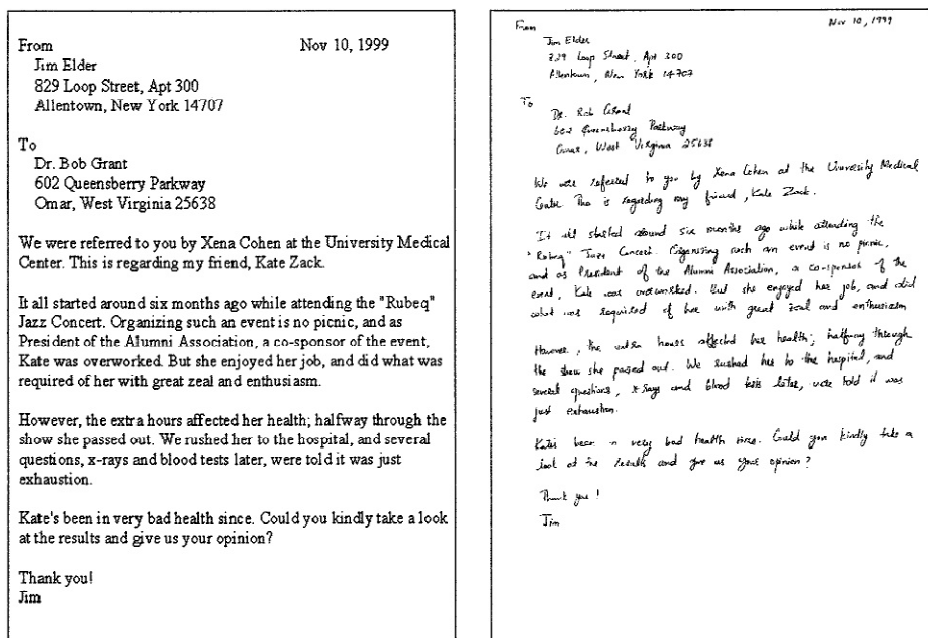 From Nov 10, 1999
Jim Elder
829 Loop Street, Apt 300
Allentown, New York 14707
To
Dr. Bob Grant
602 Queensberry Parkway
Omar, West Virginia 25638
We were referred to you by Xena Cohen at the University Medical
Center. This is regarding my friend, Kate Zack.
It all started around six months ago while attending the "Rubeq"
Jazz Concert. Organizing such an event is no picnic, and as
President of the Alumni Association, a co-sponsor of the event,
Kate was overworked. But she enjoyed her job, and did what was
required of her with great zeal and enthusiasm.
However, the extra hours affected her health; halfway through the
show she passed out. We rushed her to the hospital, and several
questions, x-rays and blood tests later, were told it was just
exhaustion.
Kate's been in very bad health since. Could you kindly take a look
at the results and give us your opinion?
Thank you!
Jim
From Nov 10, 1999
Jim Elder
829 Loop Street, Apt 300
Allentown, New York 14707
To
Dr. Bob Grant
602 Queensberry Parkway
Omar, West Virginia 25638
We were referred to you by Xena Cohen at the University Medical
Center. This is regarding my friend, Kate Zack.
It all started around six months ago while attending the
"Rubeq" Jazz Concert. Organizing such an event is no picnic,
and as President of the Alumni Association, a co-sponsor of the
event, Kate was overworked. But she enjoyed her job, and did
what was required of her with great zeal and enthusiasm
However, the extra hours affected her health; halfway through
the show she passed out. We rushed her to the hospital, and
several questions, x-rays and blood tests later, were told it was
just exhaustion.
Kate's been in very bad health since. Could you kindly take a
look at the results and give us your opinion?
Thank you!
Jim